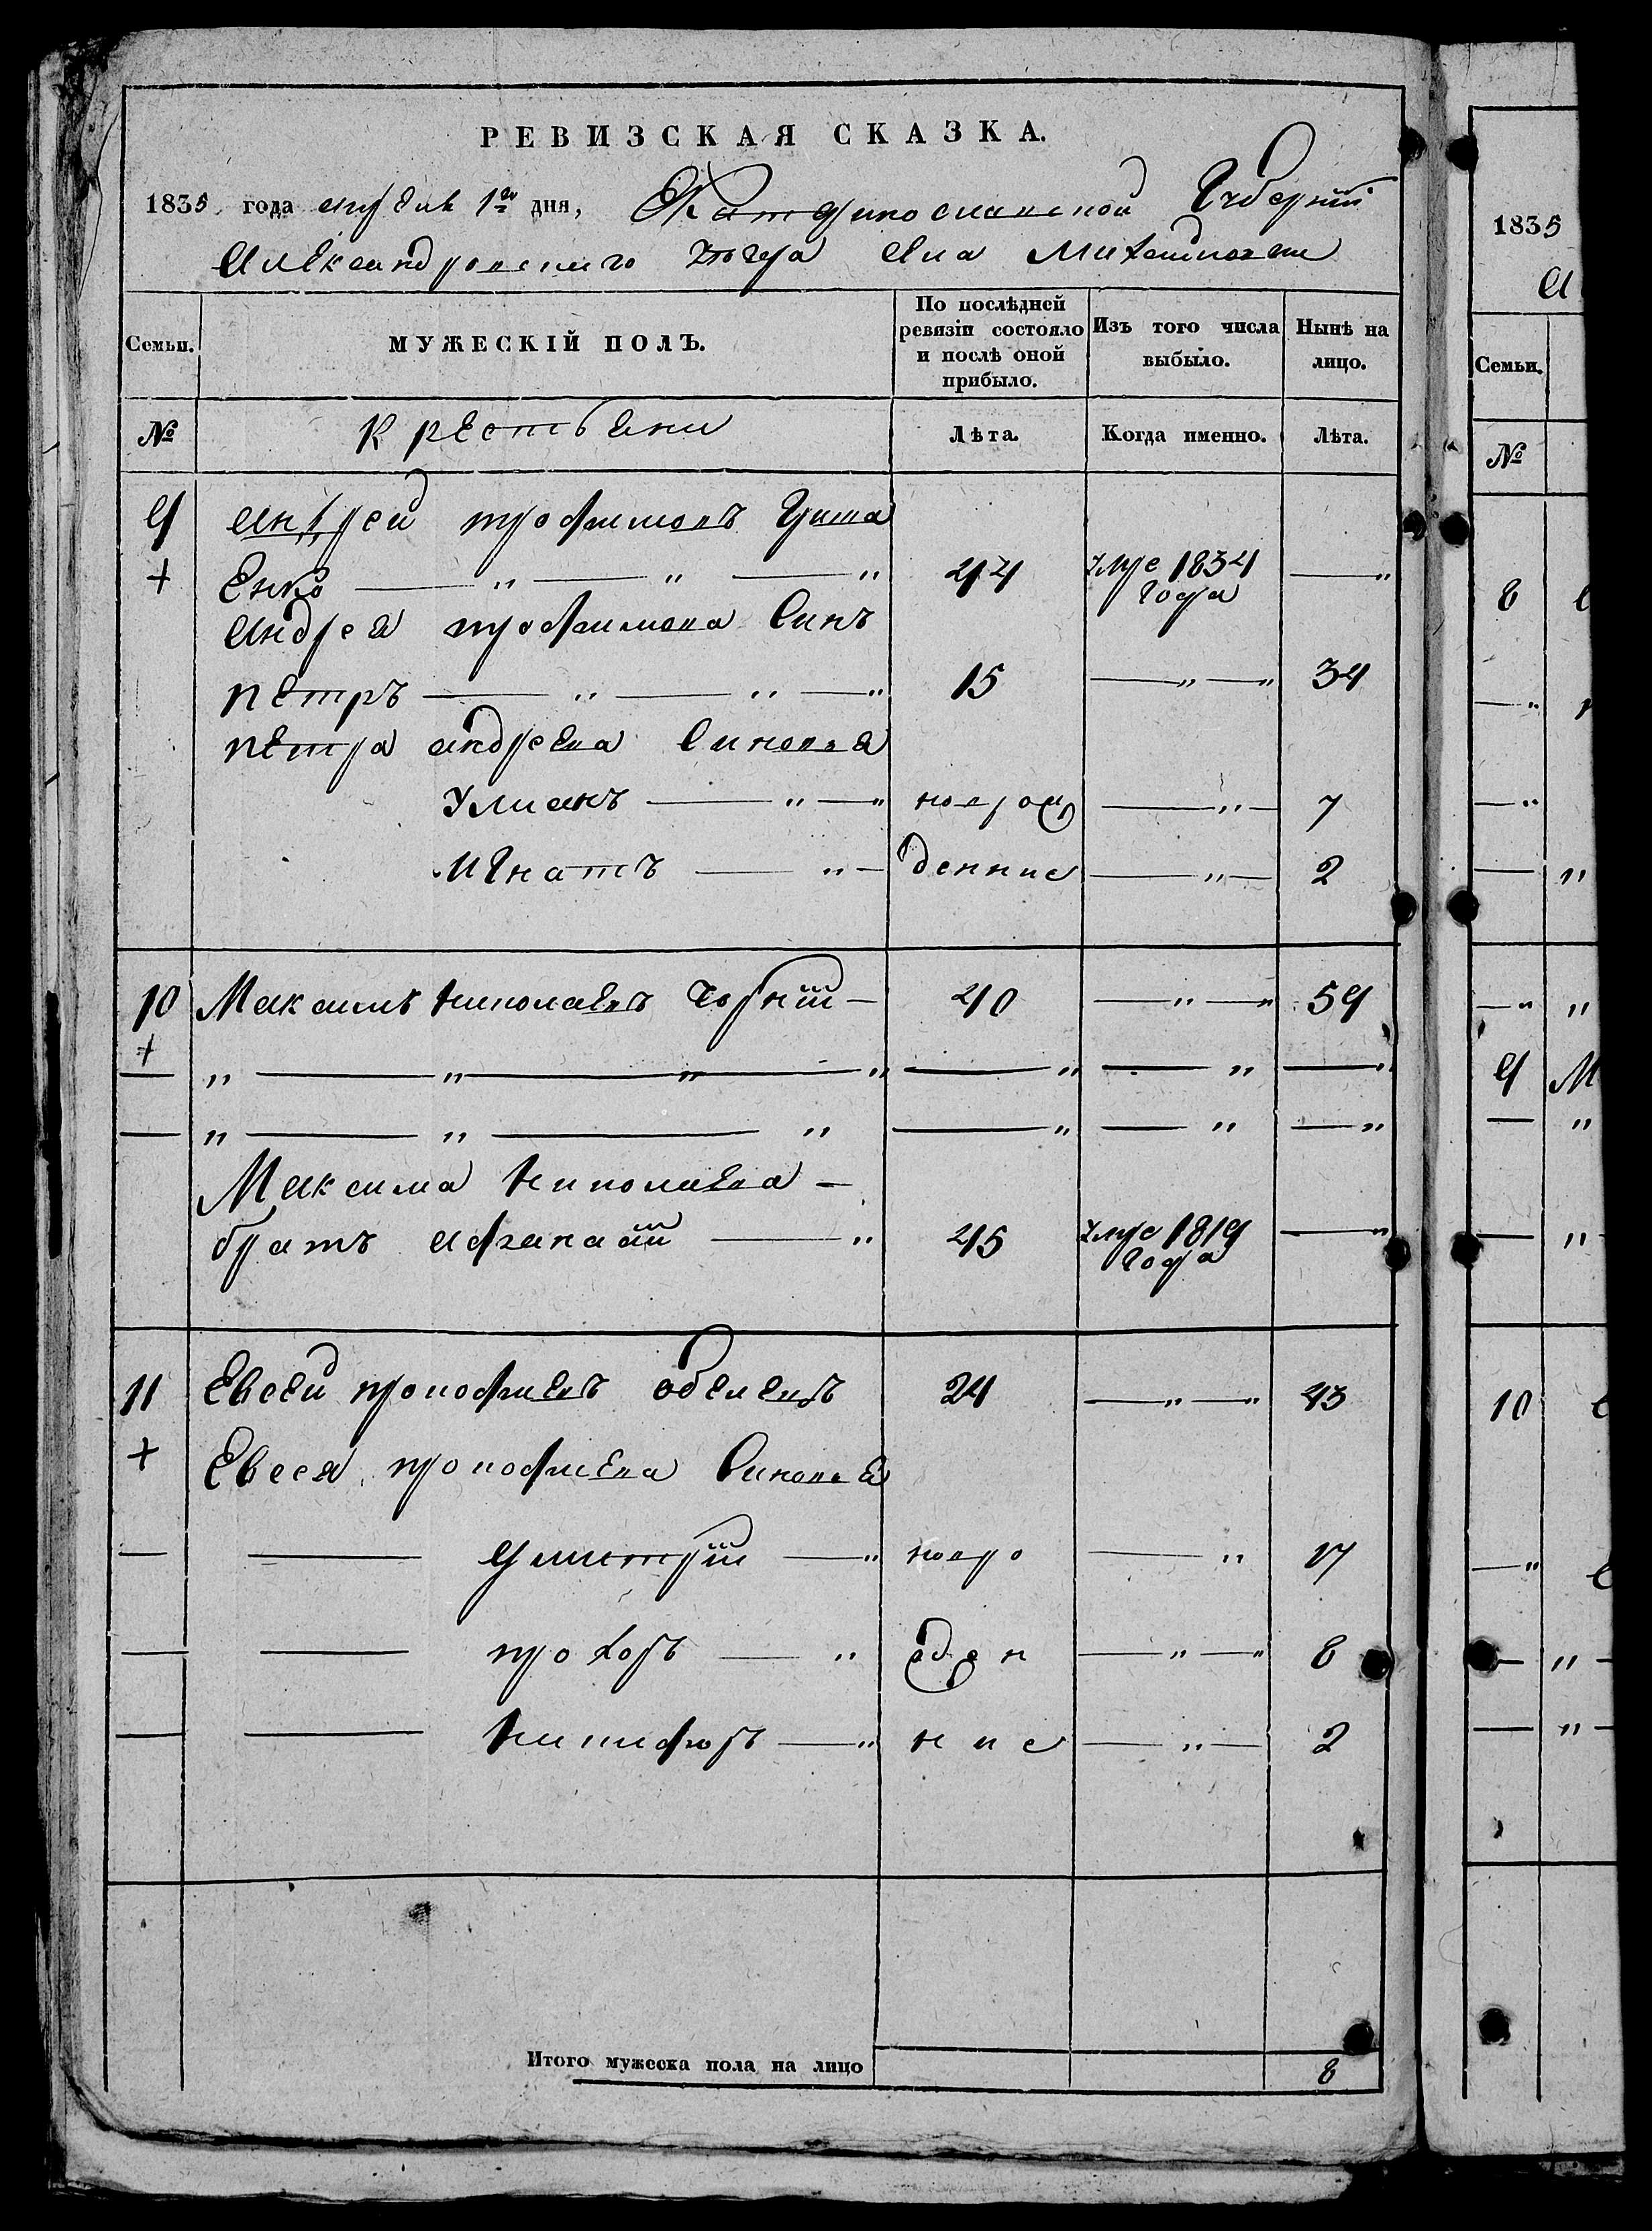 РЕВИЗСКАЯ СКАЗКА.
1835 года апреля 1го дня, Екатеринославской Губернии
Александровского уезда села Михайловки
Семьи.
МУЖЕСКІЙ ПОЛЪ.
По послѣдней ревизіи состояло и послѣ оной прибыло.
Изъ того числа выбыло.
Нынѣ на лицо.
№
Крестьяни
Лѣта.
Когда именно.
Лѣта.
9 Андрей трофимовъ
+ Енко — " — " — " 44 умре 1834 — "
года
Андрея трофимова Синъ
петръ — " — " — " 15 — " — " 34
петра андреева Синовья
Улианъ — " — " новрож — " — 7
Игнатъ — " — денние — " — 2
10 Максимъ николаевъ Чорній — 40 — " — " 59
+
— " — " — " — " — " — " — "
— " — " — " — " — " — "
Максима николаева —
братъ афанасій — " 45 умре 1819 — "
года
11 Евсей прокофиевъ 24 — " — " 43
+ Евсея прокофиева Синовья
— — Дмитрій — " новро — " 17
— — прохоръ — " жден — " — " 8
— — никифоръ — " ние — " — 2
Итого мужеска пола на лицо 8
1835
А
Семьи.
№
8
— "
— "
— "
— " "
9 М
— "
— "
10
— "
— " —
— " —